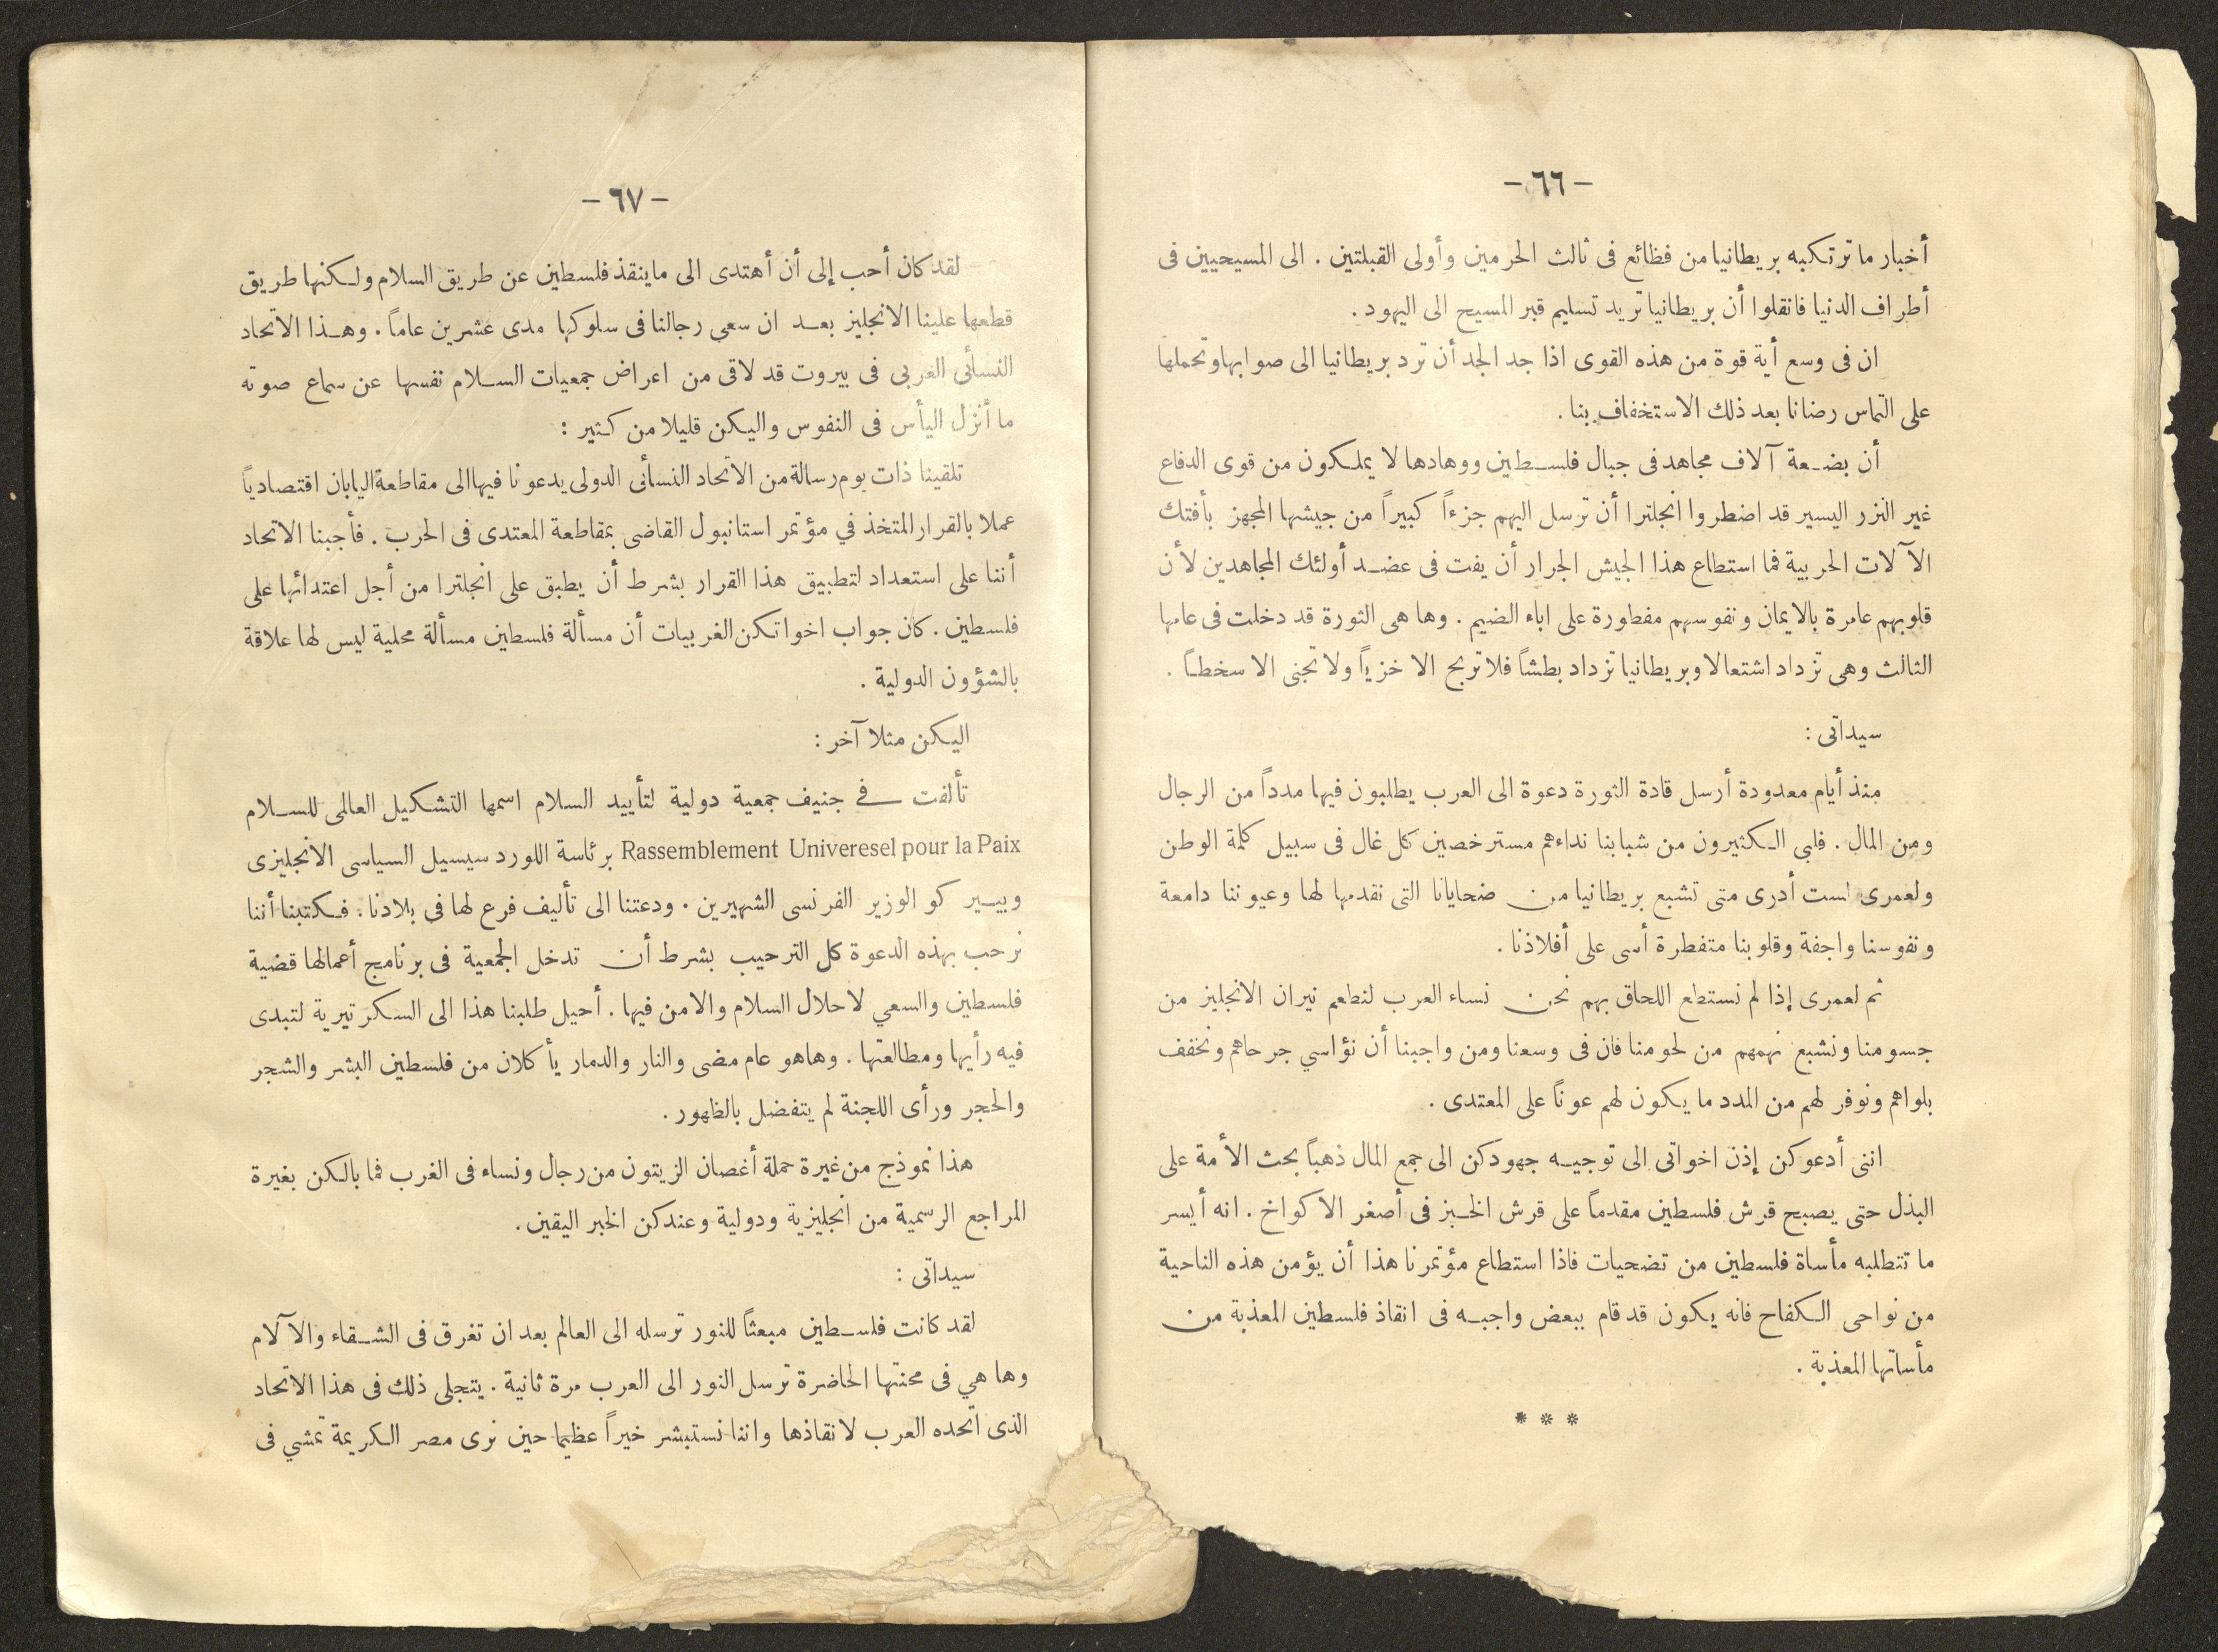 — ٦٦ —
أخبار ما ترتكبه بريطانيا من فظائع فى ثالث الحرمين وأولى القبلتين . الى المسيحيين فى
أطراف الدنيا فانقلوا أن بريطانيا تريد تسليم قبر المسيح الى اليهود .
ان فى وسع أية قوة من هذه القوى اذا جد الجد أن ترد بريطانيا الى صوابها وتحملها
على التماس رضانا بعد ذلك الاستخفاف بنا .
أن بضعة آلاف مجاهد فى جبال فلسطين ووهادها لا يملكون من قوى الدفاع
غير النزر اليسير قد اضطروا انجلترا أن ترسل اليهم جزءاً كبيراً من جيشها المجهز بأفتك
الآلات الحربية فما استطاع هذا الجيش الجرار أن يفت فى عضد أولئك المجاهدين لأن
قلوبهم عامرة بالايمان ونفوسهم مفطورة على اباء الضيم . وها هى الثورة قد دخلت فى عامها
الثالث وهى تزداد اشتعالا وبريطانيا تزداد بطشاً فلا تربح الا خزياً ولا تجنى الا سخطاً .
سيداتى :
منذ أيام معدودة أرسل قادة الثورة دعوة الى العرب يطلبون فيها مدداً من الرجال
ومن المال . فلبى الكثيرون من شبابنا نداءهم مسترخصين كل غال فى سبيل كلمة الوطن
ولعمرى لست أدرى متى تشبع بريطانيا من ضحايانا التى نقدمها لها وعيوننا دامعة
ونفوسنا واجفة وقلوبنا متفطرة أسى على أفلاذنا .
ثم لعمرى إذا لم نستطع اللحاق بهم نحن نساء العرب لنطعم نيران الانجليز من
جسومنا ونشبع نهمهم من لحومنا فان فى وسعنا ومن واجبنا أن نؤاسي جرحاهم ونخفف
بلواهم ونوفر لهم من المدد ما يكون لهم عوناً على المعتدى .
اننى أدعوكن إذن اخواتى الى توجيه جهودكن الى جمع المال ذهباً بحث الأمة على
البذل حتى يصبح قرش فلسطين مقدماً على قرش الخبز فى أصغر الاكواخ . انه أيسر
ما تتطلبه مأساة فلسطين من تضحيات فاذا استطاع مؤتمرنا هذا أن يؤمن هذه الناحية
من نواحى الكفاح فانه يكون قد قام ببعض واجبه فى انقاذ فلسطين المعذبة من
مأساتها المعذبة .
* * *
— ٦٧ —
لقد كان أحب إلى أن أهتدى الى ماينقذ فلسطين عن طريق السلام ولكنها طريق
قطعها علينا الانجليز بعد ان سعى رجالنا فى سلوكها مدى عشرين عاماً . وهذا الاتحاد
النسائى العربى فى بيروت قد لاقى من اعراض جمعيات السلام نفسها عن سماع صوته
ما أنزل اليأس فى النفوس واليكن قليلا من كثير :
تلقينا ذات يوم رسالة من الاتحاد النسائى الدولى يدعونا فيها الى مقاطعة اليابان اقتصادياً
عملا بالقرار المتخذ في مؤتمر استانبول القاضى بمقاطعة المعتدى فى الحرب . فأجبنا الاتحاد
أننا على استعداد لتطبيق هذا القرار بشرط أن يطبق على انجلترا من أجل اعتدائها على
فلسطين . كان جواب اخواتكن الغربيات أن مسألة فلسطين مسألة محلية ليس لها علاقة
بالشؤون الدولية .
اليكن مثلا آخر :
تألفت في جنيف جمعية دولية لتأييد السلام اسمها التشكيل العالمى للسلام
Rassemblement Univeresel pour la Paix برئاسة اللورد سيسيل السياسى الانجليزى
وبيير كو الوزير الفرنسى الشهيرين . ودعتنا الى تأليف فرع لها في بلادنا . فكتبنا أننا
نرحب بهذه الدعوة كل الترحيب بشرط أن تدخل الجمعية فى برنامج أعمالها قضية
فلسطين والسعي لاحلال السلام والامن فيها . أحيل طلبنا هذا الى السكرتيرية لتبدى
فيه رأيها ومطالعتها . وهاهو عام مضى والنار والدمار يأكلان من فلسطين البشر والشجر
والحجر ورأى اللجنة لم يتفضل بالظهور .
هذا نموذج من غيرة حملة أغصان الزيتون من رجال ونساء فى الغرب فما بالكن بغيرة
المراجع الرسمية من انجليزية ودولية وعندكن الخبر اليقين .
سيداتى :
لقد كانت فلسطين مبعثاً للنور ترسله الى العالم بعد ان تغرق فى الشقاء والآلام
وها هي فى محنتها الحاضرة ترسل النور الى العرب مرة ثانية . يتجلى ذلك فى هذا الاتحاد
الذى اتحده العرب لانقاذها واننا نستبشر خيراً عظيما حين نرى مصر الكريمة تمشي فى